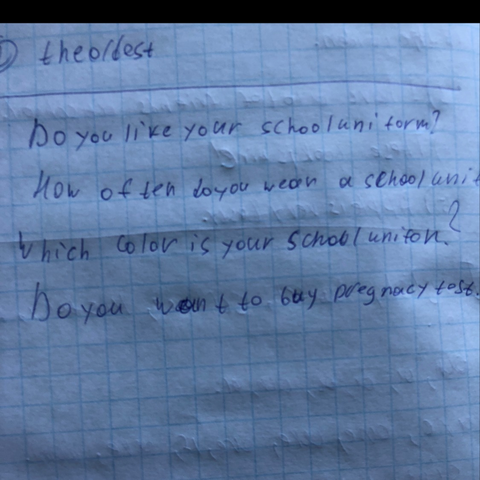 ① theoldest
Do you like your school uniform?
How often do you wear a school unif
Which color is your school uniton?
Do you want to buy pregnacy test.